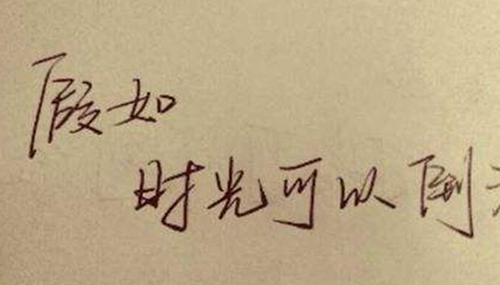 假如
时光可以倒